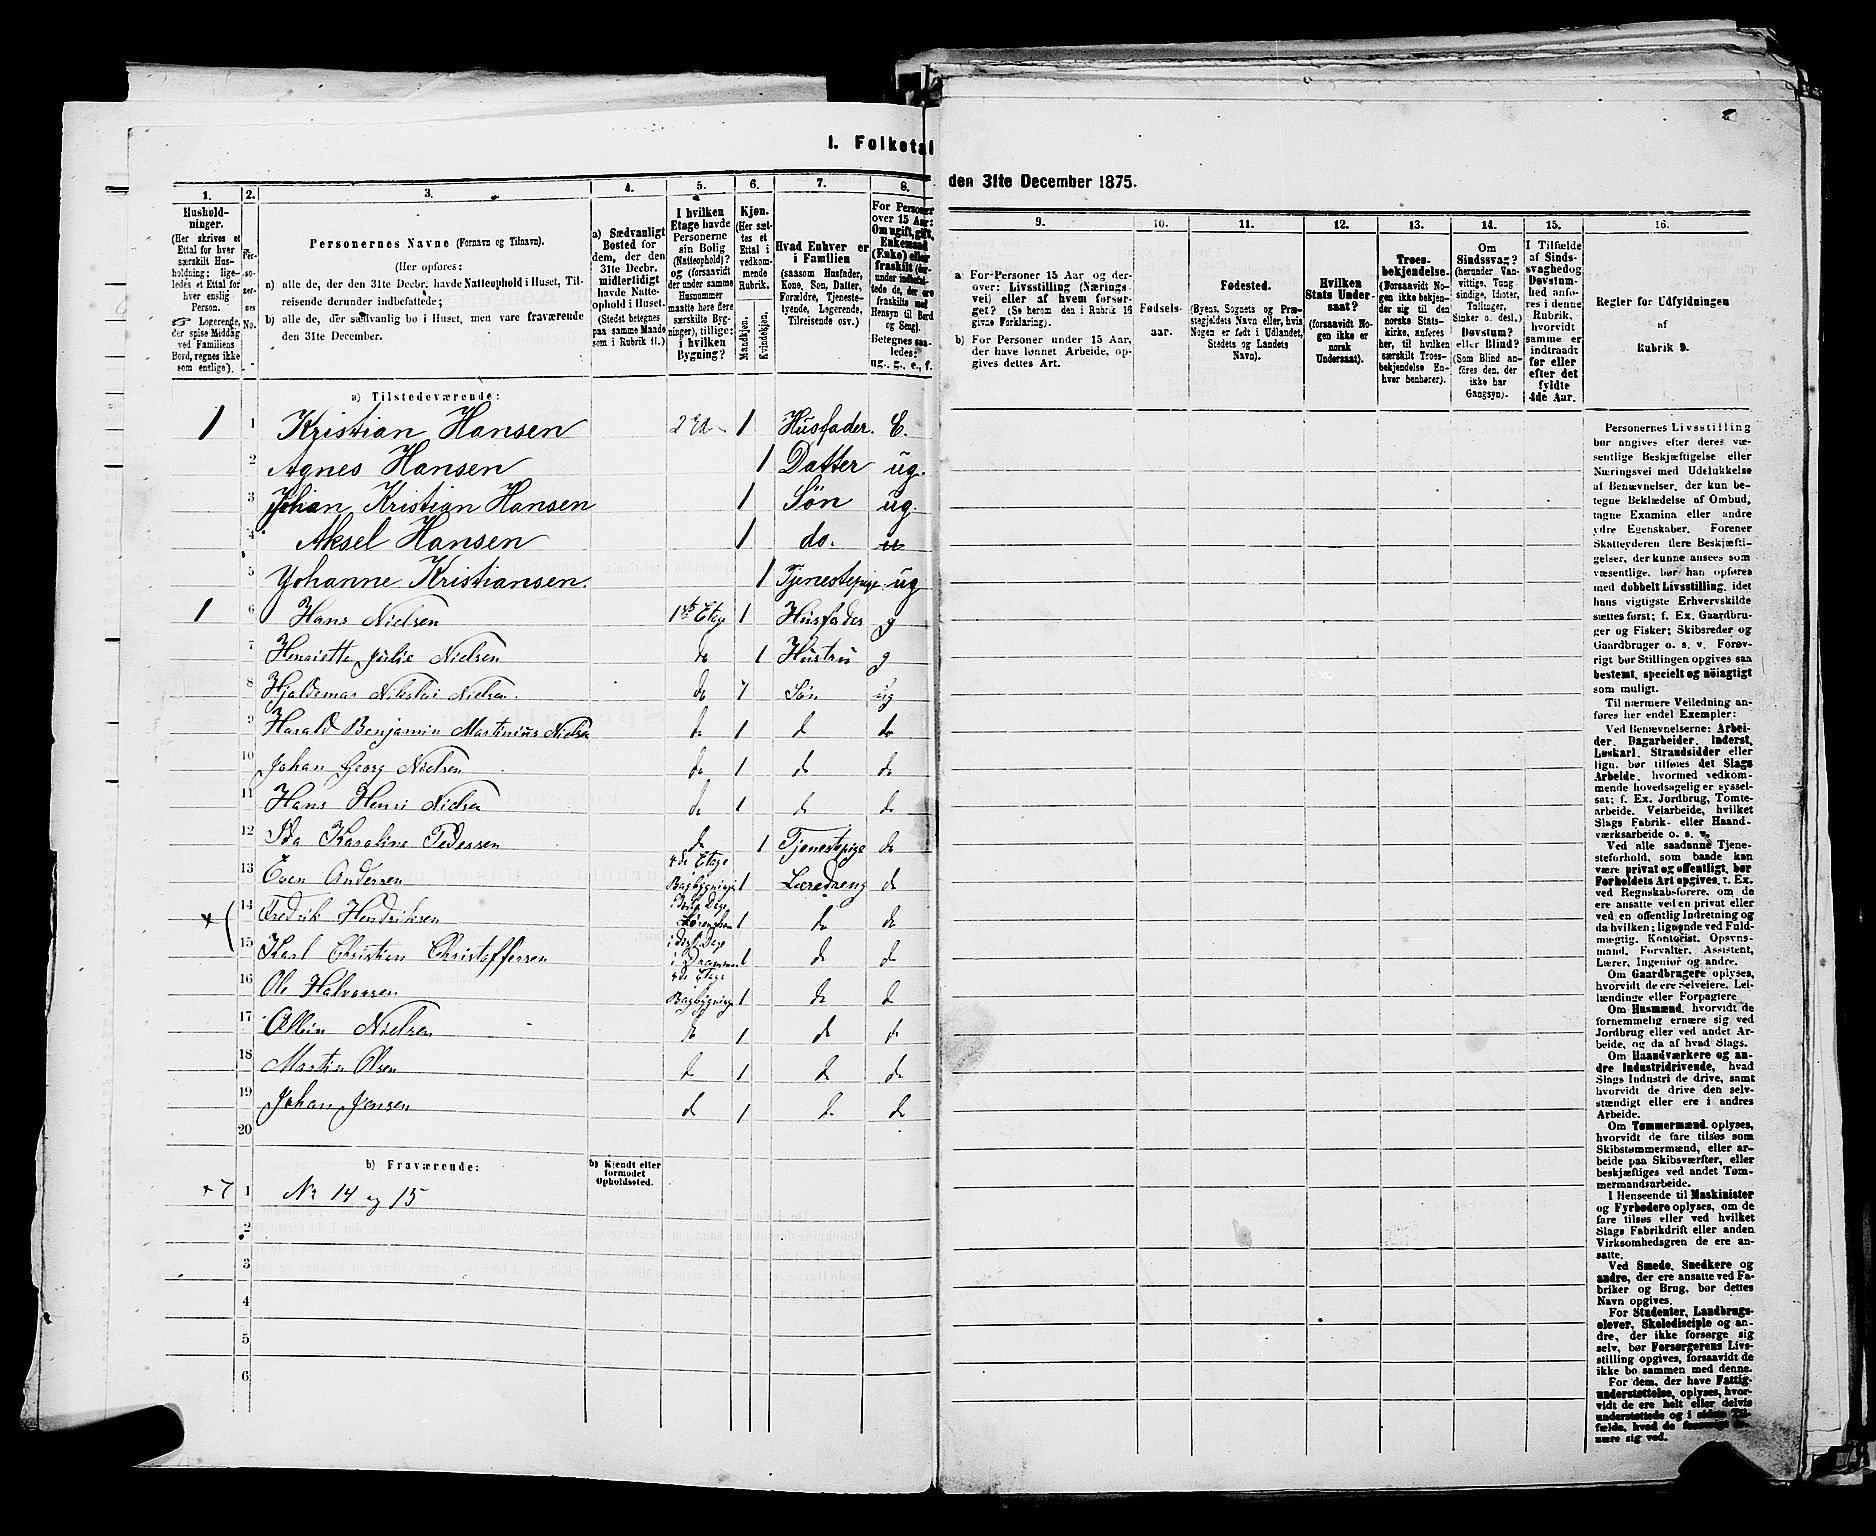 I. Folketal
den 31te December 1875.
1. 2. 3. 4. 5. 6. 7. 8.
Hushold-
ninger.
(Her skrives et
Ettal for hver
særskilt Hus-
holdning; lige-
ledes et Ettal for
hver enslig
Person.
Logerende,
der spise Middag
ved Familiens
Bord, regnes ikke
som enslige).
Per-
so-
ner-
nes
No.
Personernes Navne (Fornavn og Tilnavn).
(Her opføres:
a) alle de, der den 31te Decbr. havde Natteophold i Huset, Til-
reisende derunder indbefattede;
b) alle de, der sædvanlig bo i Huset, men vare fraværende
den 31te December.
a) Sædvanligt
Bosted for
dem, der den
31te Decbr.
midlertidigt
havde Natte-
ophold i Huset.
(Stedet betegnes
paa samme Maade
som i Rubrik 11.)
I hvilken
Etage havde
Personerne
sin Bolig
(Natteophold)?
og (forsaavidt
der under samme
Husnummer
maatte høre flere
særskilte Byg-
ninger), tillige:
i hvilken
Bygning?
Kjøn.
(Her sæt-
tes et
Ettal i
vedkom-
mende
Rubrik.
Mandkjøn.
Kvindekjøn.
Hvad Enhver er
i Familien
(saasom Husfader,
Kone, Søn, Datter,
Forældre, Tjeneste-
tyende, Logerende,
Tilreisende osv.)
For Personer
over 15 Aar:
Om ugift, gift,
Enkemand
(Enke) eller
fraskilt
Hensyn til Bord
og Seng).
Betegnes saa-
ledes:
ug., g., e., f.
a) Tilstedeværende:
1 1 Kristian Hansen 2 1 Husfader. E.
2 Agnes Hansen 1 Datter ug.
3 Johan Kristian Hansen 1 Søn ug.
4 Aksel Hansen 1 do.
5 Johanne Kristiansen. 1 Tjenestepige ug
1 6 Hans Nielsen 1ste Etage 1 Husfader g
7 Henriette Julie Nielsen do 1 Hustru g
8 Hjaldemar Nikolai Nielsen. do 1 Søn ug
9 Harald Benjamin Martinius Nielsen do 1 do do
10 Johan Georg Nielsen do 1 do do
11 Hans Henri Nielsen do 1 do do
12 Ida Karoline Pedersen do 1 Tjenestepige do
13 Even Andersen 4de Etage Bagbygningen 1 Læredreng do
14 Fredrik Hendriksen 1 do do
15 Karl Christian Christoffersen i Drammen 1 do do
16 Ole Halvorsen 4de Etage i Bagbygningen 1 do do
17 Nielsen do 1 do do
18 Martin Olsen do 1 do do
19 Johan Jensen do 1 do do
20
b) Fraværende:
b) Kjendt eller
formodet
Opholdssted.
1 No 14 og 15
2
3
4
5
6
9. 10. 11. 12. 13. 14. 15. 16.
a) For Personer 15 Aar og der-
over: Livsstilling (Nærings-
vei) eller af hvem forsør-
get? (Se herom den i Rubrik 16
givne Forklaring).
b) For Personer under 15 Aar,
der have lønnet Arbeide, op-
gives dettes Art.
Fødsels-
aar.
Fødested.
(Byens, Sognets og Præ-
stegjeldets Navn eller, hvis
Nogen er født i Udlandet,
Stedets og Landets
Navn).
Hvilken
Stats Under-
saat?
(forsaavidt No-
gen ikke er
norsk
Undersaat).
Troes-
bekjendelse.
(Forsaavidt No-
gen ikke bekjen-
der sig til den
norske Stats-
kirke, anføres
her, til hvilken
særskilt Troes-
bekjendelse En-
hver henhører).
Om
Sindssvag?
(herunder Van-
vittige, Tung-
sindige, Idioter,
Tullinger,
Sinker o. desl.)
Døvstum?
eller Blind?
(Som Blind an-
føres den, der
ikke har
Gangsyn).
I Tilfælde
af Sinds-
svaghed og
Døvstum-
hed anfø-
res i denne
Rubrik,
hvorvidt
samme er
indtraadt
før eller
efter det
fyldte
4de Aar.
Regler for Udfyldningen
af
Rubrik 9.
Personernes Livsstilling
bør angives efter deres væ-
sentlige Beskjæftigelse eller
Næringsvei med Udelukkelse
af Benævnelser, der kun be-
tegne Beklædelse af Ombud,
tagne Examina eller andre
ydre Egenskaber. Forener
Skatteyderen flere Beskjæfti-
gelser, der kunne ansees som
væsentlige, bør han opføres
med dobbelt Livsstilling, idet
hans vigtigste Erhvervskilde
sættes først; f. Ex. Gaardbru-
ger og Fisker; Skibsreder og
Gaardbruger o. s. v. Forøv-
rigt bør Stillingen opgives saa
bestemt, specielt og nøiagtigt
som muligt.
Til nærmere Veiledning an-
føres her endel Exempler:
Ved Benævnelserne: Arbei-
der, Dagarbeider, Inderst,
Løskarl, Strandsidder eller
lign. bør tilføies det Slags
Arbeide, hvormed vedkom-
mende hovedsagelig er syssel-
sat; f. Ex. Jordbrug, Tomte-
arbeide, Veiarbeide, hvilket
Slags Fabrik- eller Haand-
værksarbeide o. s. v.
Ved alle saadanne Tjene-
steforhold, som baade kan
være privat og offentligt, bør
Forholdets Art opgives, t. Ex.
ved Regnskabsførere, om de
ere ansatte ved en privat eller
ved en offentlig Indretning og
da hvilken; lignende ved Fuld-
mægtig, Kontorist, Opsyns-
mand, Forvalter, Assistent,
Lærer, Ingeniør og andre.
Om Gaardbrugere oplyses,
hvorvidt de ere Selveiere, Lei-
lændinge eller Forpagtere
Om Husmænd, hvorvidt de
fornemmelig ernære sig ved
Jordbrug eller ved andet Ar-
beide, og da af hvad Slags.
Om Haandværkere og an-
dre Industridrivende, hvad
Slags Industri de drive, samt
hvorvidt de drive den selv-
stændigt eller ere i andres
Arbeide.
Om Tømmermænd oplyses,
hvorvidt de fare tilsøs som
Skibstømmermænd, eller ar-
beide paa Skibsværfter, eller
beskjæftiges ved andet Tøm-
mermandsarbeide.
I Henseende til Maskinister
og Fyrbødere oplyses, om de
fare tilsøs eller ved hvilket
Slags Fabrikdrift eller anden
Virksomhedsgren de ere an-
satte.
Ved Smede, Snedkere og
andre, der ere ansatte ved Fa-
briker og Brug, bør dettes
Navn opgives.
For Studenter, Landbrugs-
elever, Skoledisciple og an-
dre, der ikke forsørge sig
selv, bør Forsørgerens Livs-
stilling opgives, forsaavidt de
ikke bo sammen med denne.
For dem, der have Fattig-
understøttelse, oplyses, hvor-
vidt de ere helt eller delvis
understøttede og i sidste Til-
fælde, hvad de forøvrigt er-
nære sig ved.